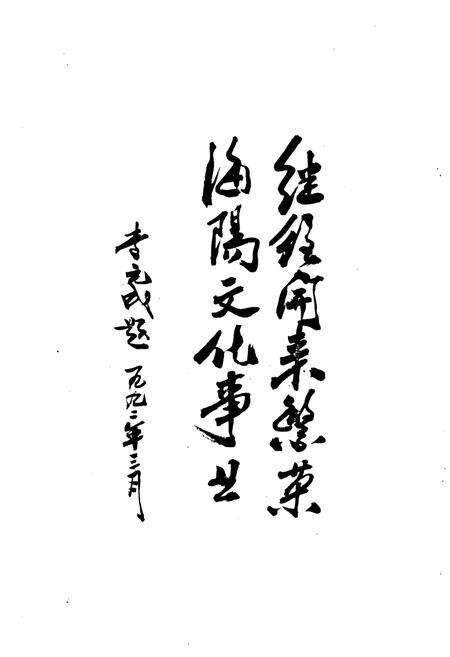 继往開来繁荣
海陽文化事业
李元成题 一九九二年三月